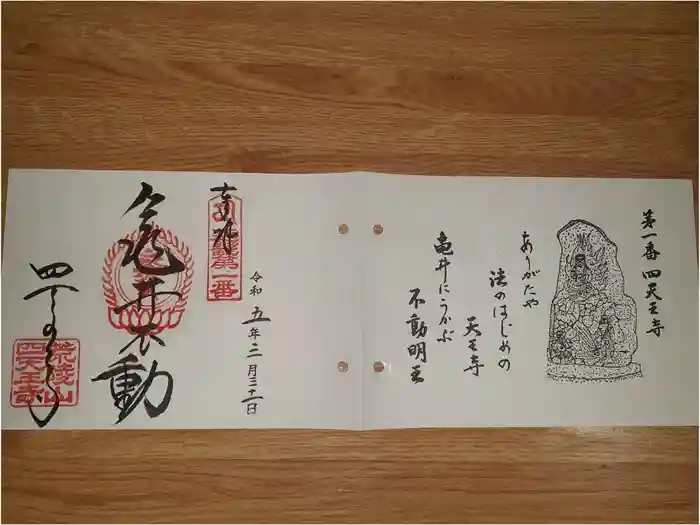 第一番 四天王寺
ありがたや
法のはじめの
天王寺
亀井にうかぶ
不動明王
令和五年三月三十一日
奉拝
第一番
亀井不動
四天王寺
荒陵山
四天王寺